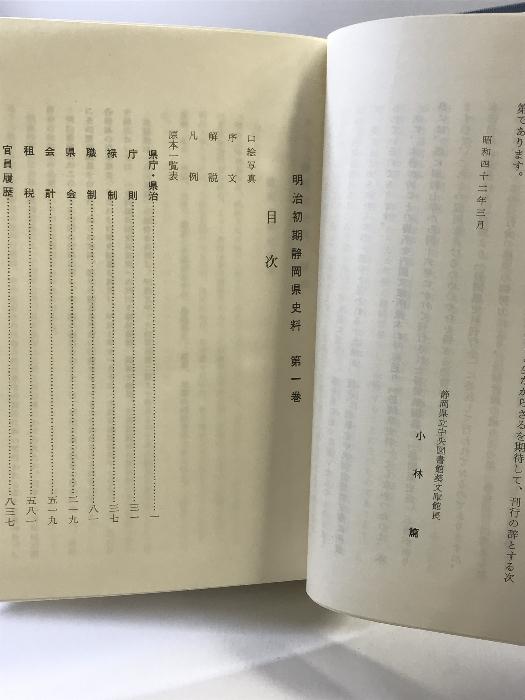 生かからざるを期待して、刊行の辞とする次
第であります。
昭和四十二年三月
静岡県立中央図書館葵文庫館長
小林 篤
明治初期静岡県史料 第一巻
目次
口絵写真
序文
解説
凡例
原本一覧表
県庁・県治……一
庁則……三一
禄制……三七
職制……八一
県会……二一九
会計……五一九
租税……五八一
官員履歴……八三七